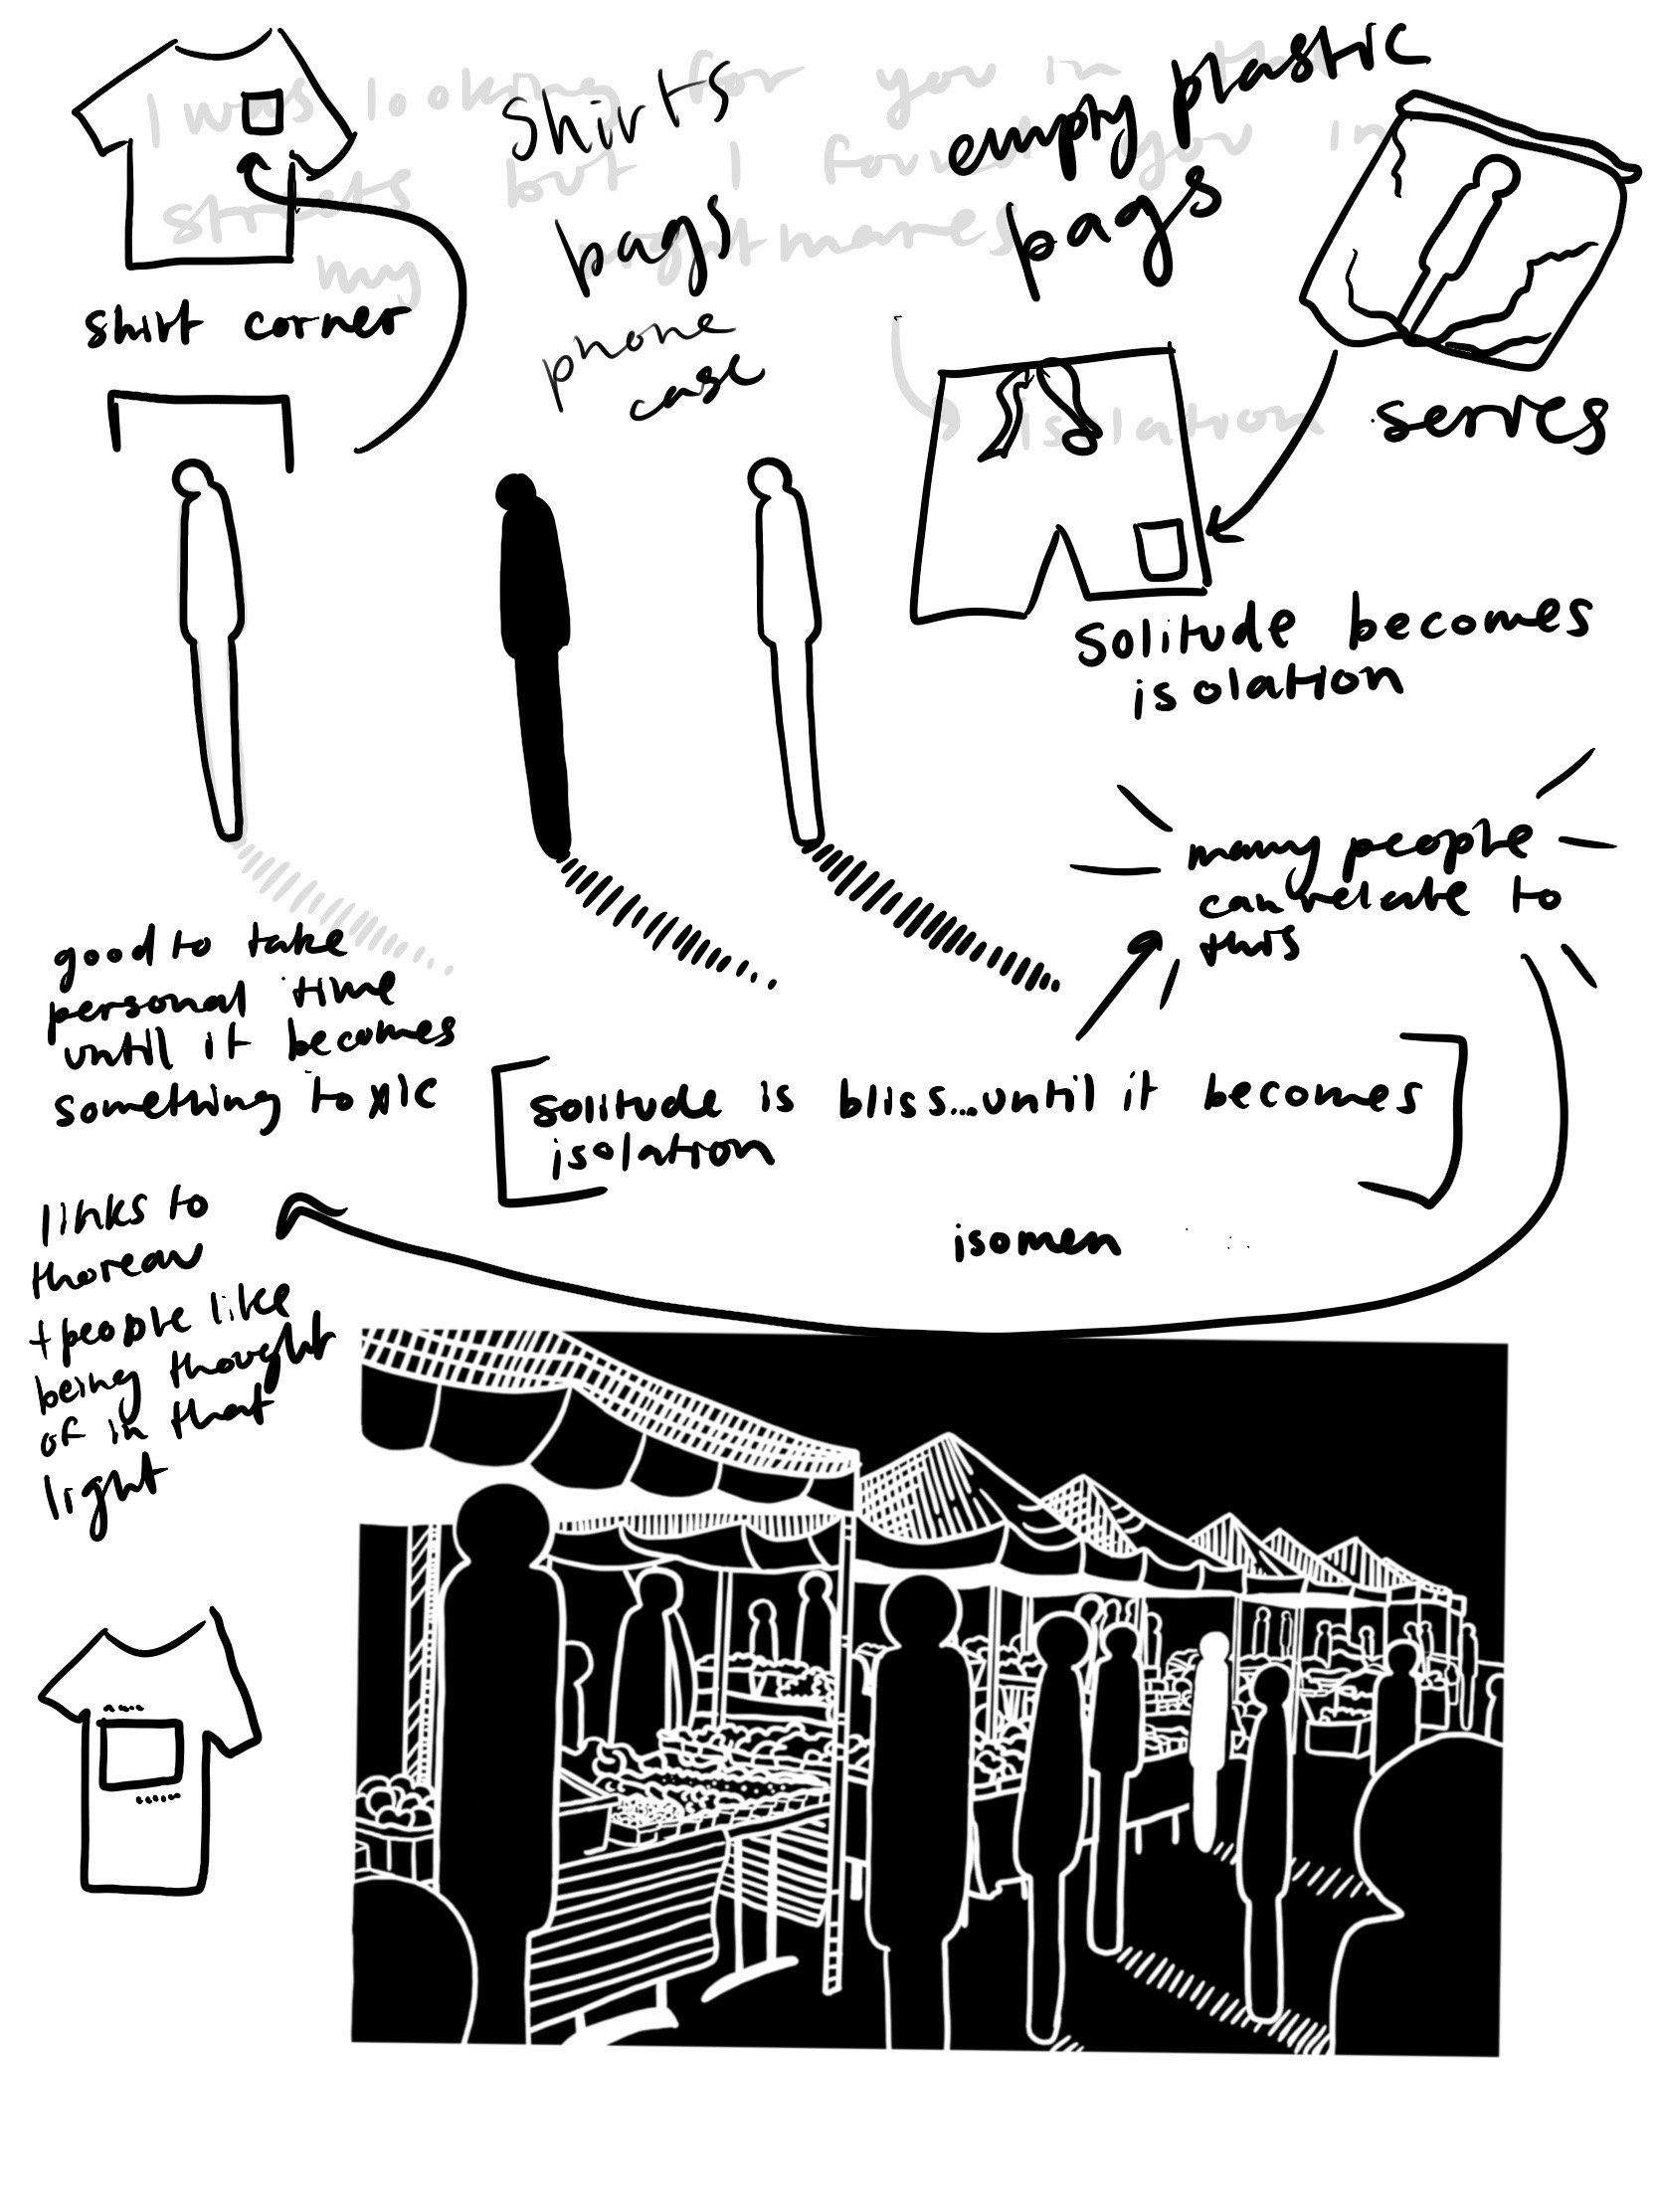 I was looking for you in the
streets but I found you in
my nightmares
isolation
shirt corner
shirts
bags
phone
case
empty plastic
bags
serves
solitude becomes
isolation
many people
can relate to
this
good to take
personal time
until it becomes
something toxic
solitude is bliss...until it becomes
isolation
isomen
links to
thoreau
+people like
being thought
of in that
light